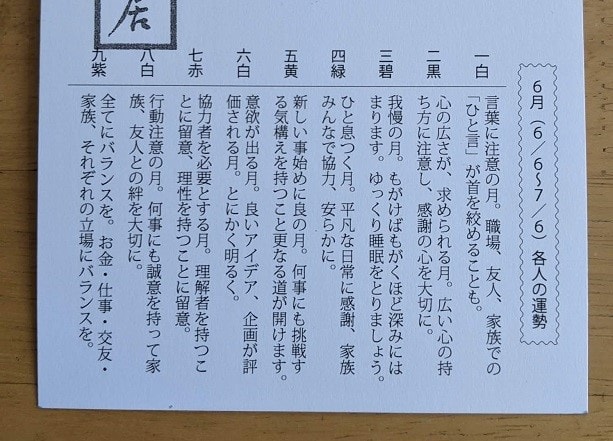 6月（6／6〜7／6）各人の運勢
一白
言葉に注意の月。職場、友人、家族での
「ひと言」が首を絞めることも。
二黒
心の広さが、求められる月。広い心の持
ち方に注意し、感謝の心を大切に。
三碧
我慢の月。もがけばもがくほど深みには
まります。ゆっくり睡眠をとりましょう。
四緑
ひと息つく月。平凡な日常に感謝、家族
みんなで協力、安らかに。
五黄
新しい事始めに良の月。何事にも挑戦す
る気構えを持つこと更なる道が開けます。
六白
意欲が出る月。良いアイデア、企画が評
価される月。とにかく明るく。
七赤
協力者を必要とする月。理解者を持つこ
とに留意、理性を持つことに留意。
八白
行動注意の月。何事にも誠意を持って家
族、友人との絆を大切に。
九紫
全てにバランスを。お金・仕事・交友・
家族、それぞれの立場にバランスを。
居